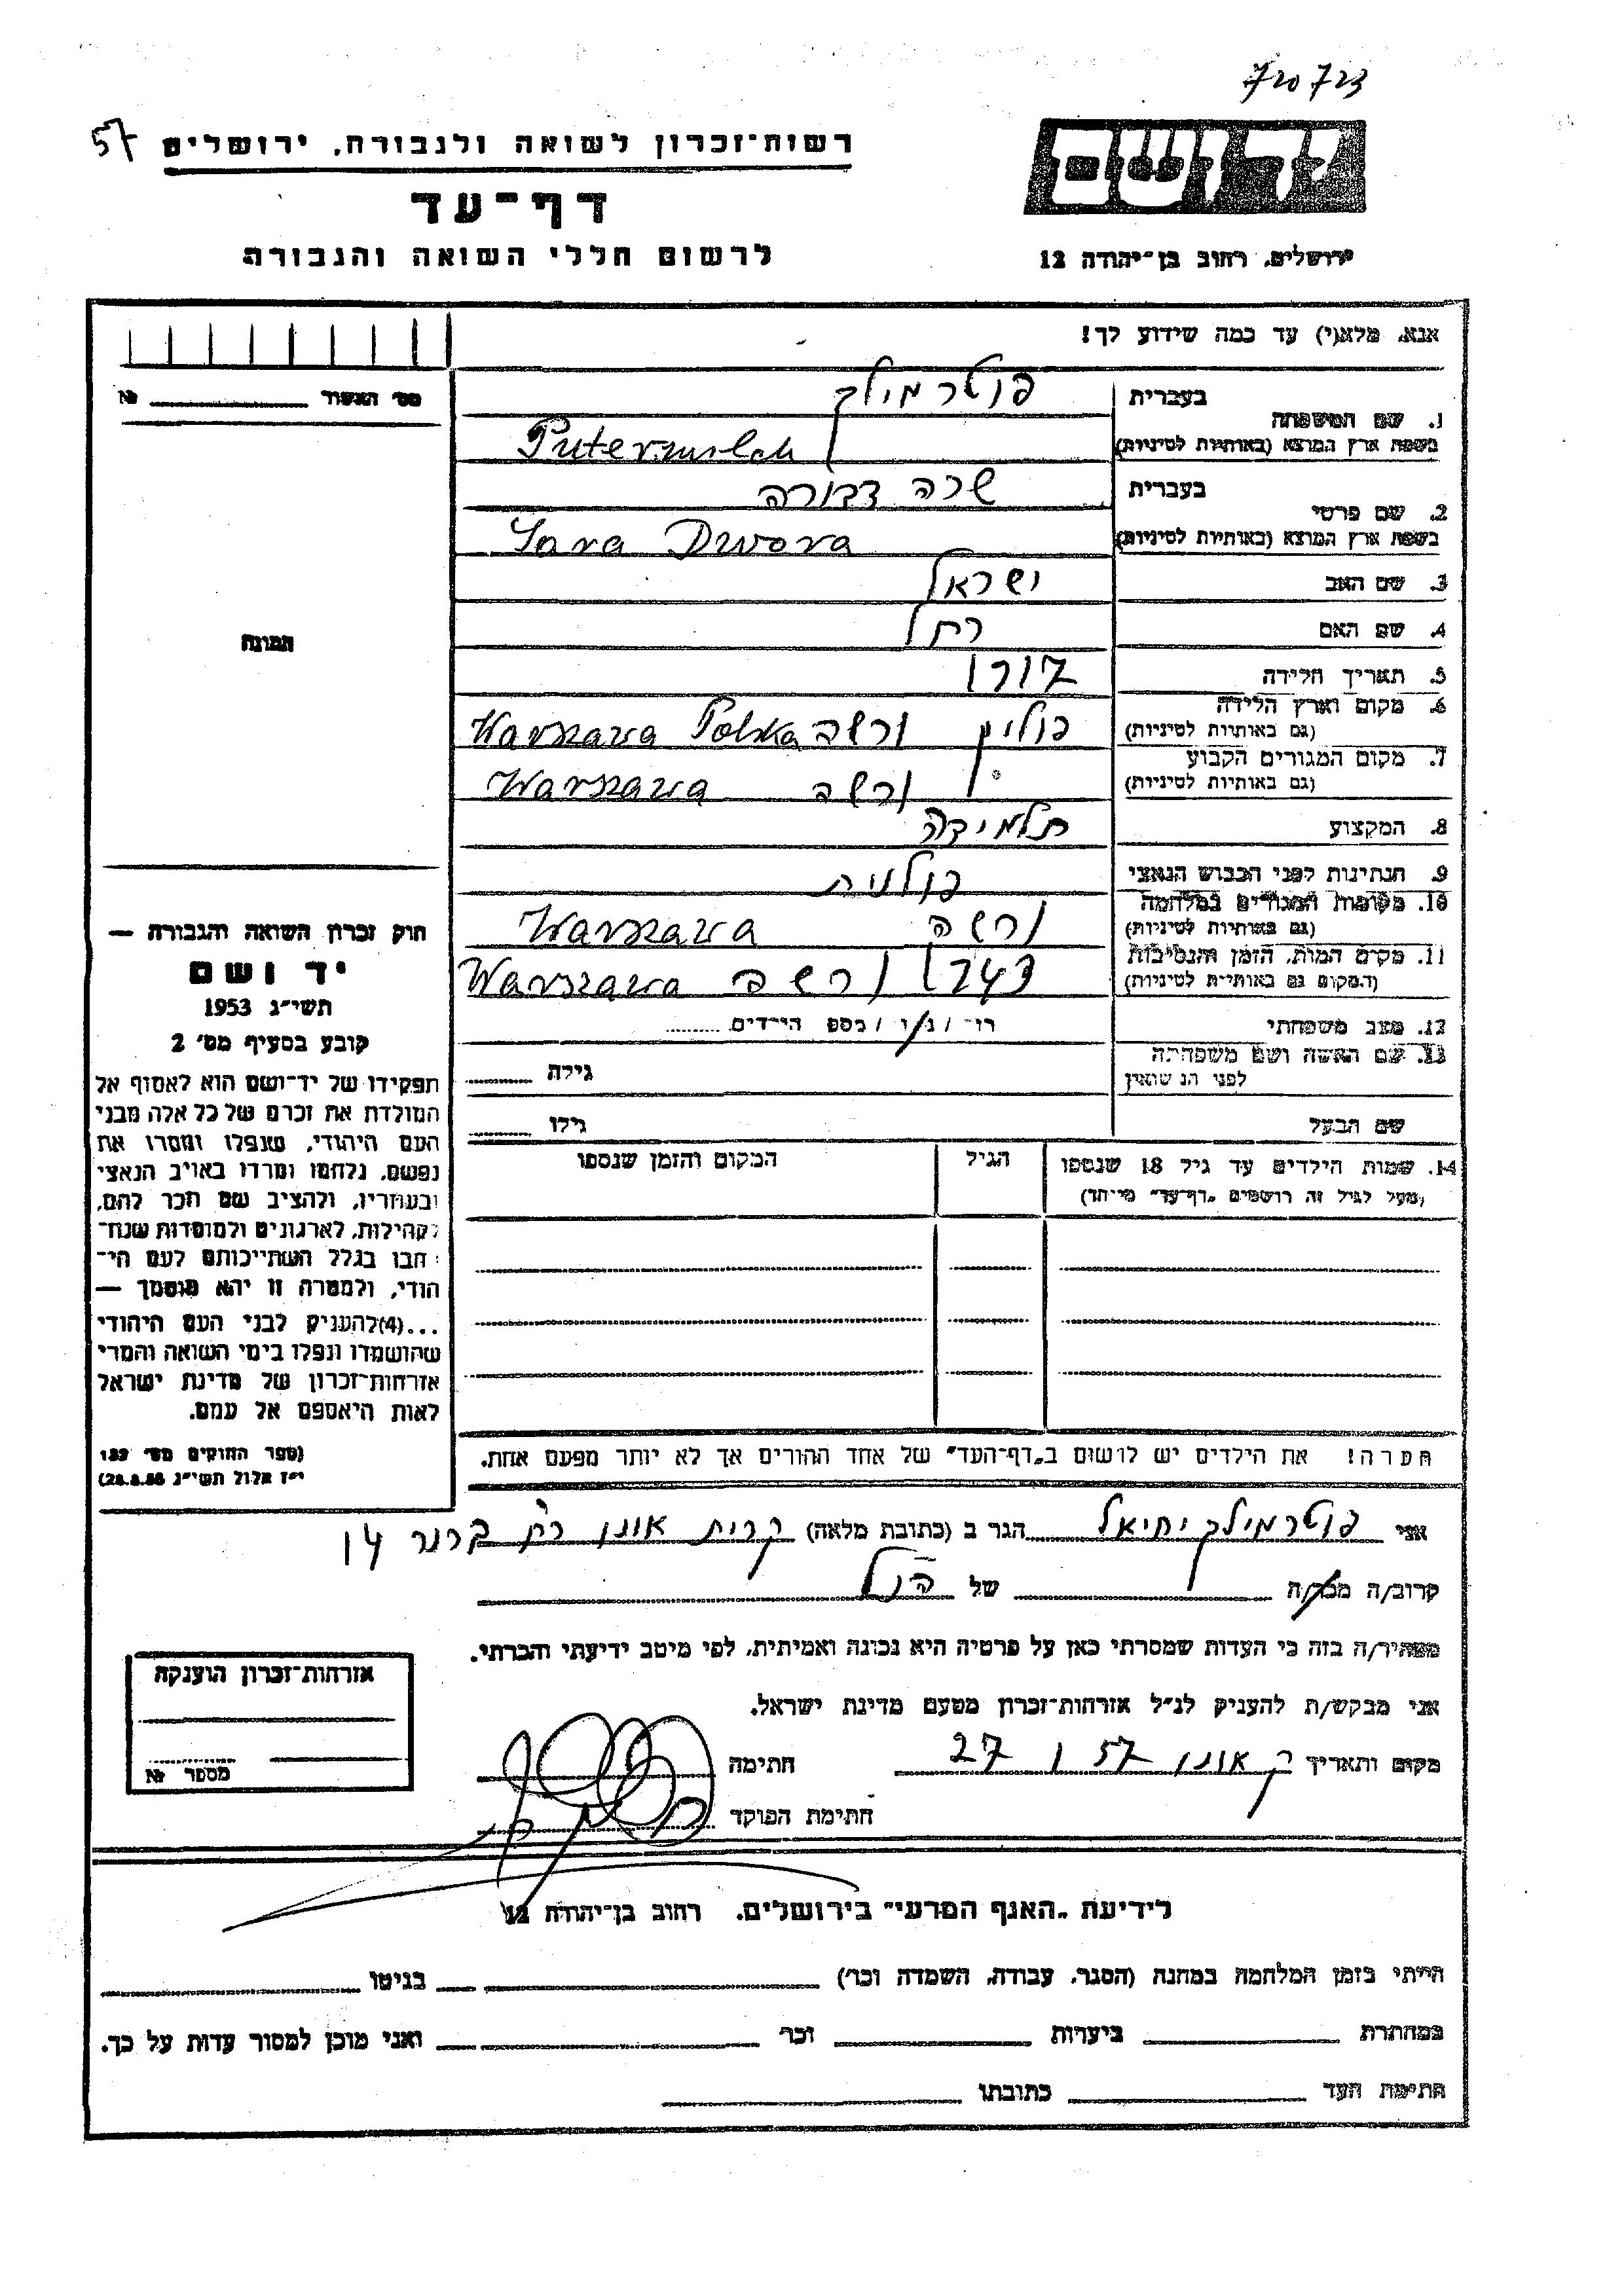 720723
57 רשות־זכרון לשואה ולגבורה, ירושלים
יד ושם
דף־עד
לרשום חללי השואה והגבורה
ירושלים, רחוב בן־יהודה 12
אנא, מלא(י) עד כמה שידוע לך!
מס׳ האשור № 
1. שם המשפחה
בעברית פוטרמילך
בשפת ארץ המוצא (באותיות לטיניות) Putermilch
2. שם פרטי
בעברית שרה דבורה
בשפת ארץ המוצא (באותיות לטיניות) Sara Dwora
3. שם האב ישראל
4. שם האם רחל
5. תאריך הלידה
6. מקום וארץ הלידה
(גם באותיות לטיניות) פולין ורשה Warszawa Polska
7. מקום המגורים הקבוע
(גם באותיות לטיניות) ורשה Warszawa
8. המקצוע תלמידה
9. הנתינות לפני הכבוש הנאצי פולנית
10. מקומות המגורים במלחמה
(גם באותיות לטיניות) ורשה Warszawa
11. מקום המות, הזמן והנסיבות
(המקום גם באותיות לטיניות) ורשה Warszawa
12. מצב משפחתי רו׳ / נ / ו / מספר הילדים
13. שם האשה ושם משפחתה
לפני הנשואין גילה
שם הבעל גילו
14. שמות הילדים עד גיל 18 שנספו הגיל המקום והזמן שנספו
(מעל לגיל זה רושמים „דף־עד״ מיוחד)
הערה! את הילדים יש לרשום ב„דף־העד״ של אחד ההורים אך לא יותר מפעם אחת.
תמונה
חוק זכרון השואה והגבורה —
יד ושם
תשי״ג 1953
קובע בסעיף מס׳ 2
תפקידו של יד־ושם הוא לאסוף אל
המולדת את זכרם של כל אלה מבני
העם היהודי, שנפלו ומסרו את
נפשם, נלחמו ומרדו באויב הנאצי
ובעוזריו, ולהציב שם וזכר להם,
לקהילות, לארגונים ולמוסדות שנח־
רבו בגלל השתייכותם לעם הי־
הודי, ולמטרה זו יהא מוסמך —
...(4) להעניק לבני העם היהודי
שהושמדו ונפלו בימי השואה והמרי
אזרחות־זכרון של מדינת ישראל
לאות היאספם אל עמם.
(ספר החוקים מס׳ 132
י״ז אלול תשי״ג
אני פוטרמילך יחיאל הגר ב (כתובת מלאה) קרית אונו רח׳ ברנר 14
קרוב/ה מכר/ה של הנ״ל
מצהיר/ה בזה כי העדות שמסרתי כאן על פרטיה היא נכונה ואמיתית, לפי מיטב ידיעתי והכרתי.
אני מבקש/ת להעניק לנ״ל אזרחות־זכרון מטעם מדינת ישראל.
מקום ותאריך ק אונו 27 I 57 חתימה
חתימת הפוקד
אזרחות־זכרון הוענקה
מספר №
לידיעת „האגף המדעי״ בירושלים, רחוב בן־יהודה 12
הייתי בזמן המלחמה במחנה (הסגר, עבודה, השמדה וכר׳) בגיטו
במחתרת ביערות וכר׳ ואני מוכן למסור עדות על כך.
חתימת העד כתובתו